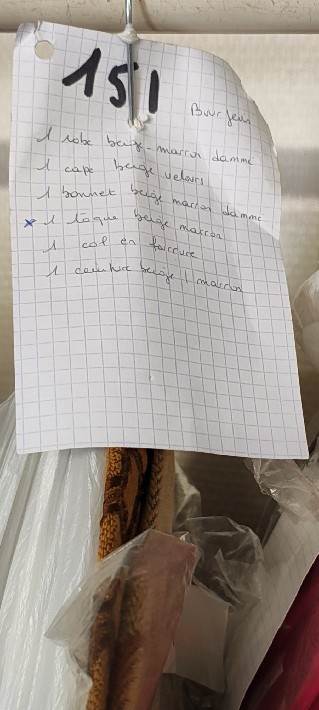 151
1 robe beige-marron dammé
1 cape beige velours
1 bonnet beige marron dammé
x 1 toque beige marron
1 col en fourrure
1 ceinture beige / marron